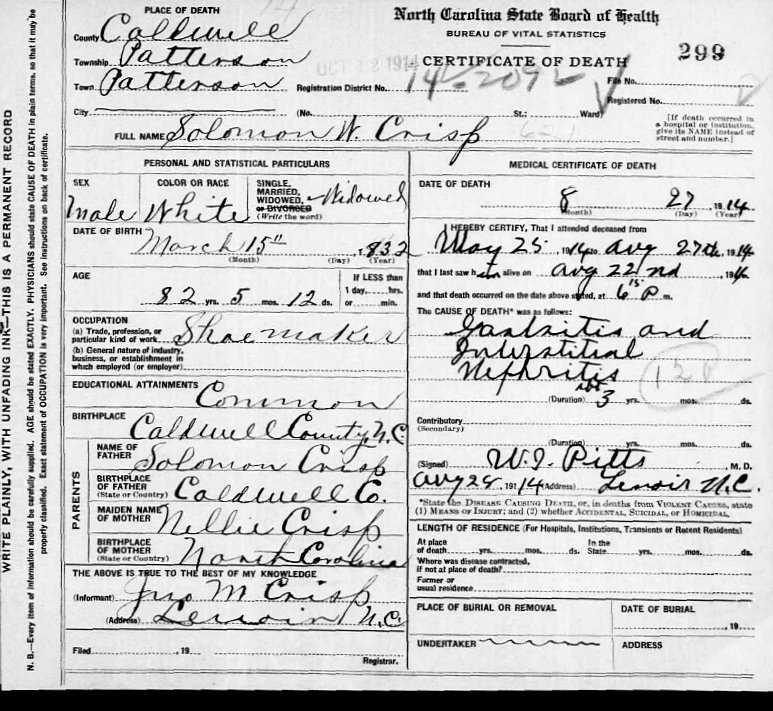 WRITE PLAINLY, WITH UNFADING INK—THIS IS A PERMANENT RECORD
N. B.—Every item of information should be carefully supplied. AGE should be stated EXACTLY. PHYSICIANS should state CAUSE OF DEATH in plain terms, so that it may be
properly classified. Exact statement of OCCUPATION is very important. See instructions on back of certificate.
PLACE OF DEATH
County Caldwell
Township Patterson
Town Patterson
City
North Carolina State Board of Health
BUREAU OF VITAL STATISTICS
CERTIFICATE OF DEATH
299
OCT 12 1914
Registration District No. 14-2092
File No.
Registered No.
(No. St.; Ward)
[If death occurred in
a hospital or institution,
give its NAME instead of
street and number.]
FULL NAME Solomon W. Crisp
PERSONAL AND STATISTICAL PARTICULARS
SEX
Male
COLOR OR RACE
White
SINGLE,
MARRIED,
WIDOWED,
or DIVORCED
(Write the word)
Widowed
DATE OF BIRTH
March 15" , 1832
(Month) (Day) (Year)
AGE
82 yrs. 5 mos. 12 ds.
If LESS than
1 day, hrs.
or min.
OCCUPATION
(a) Trade, profession, or
particular kind of work Shoemaker
(b) General nature of industry,
business, or establishment in
which employed (or employer)
EDUCATIONAL ATTAINMENTS
Common
BIRTHPLACE
Caldwell County, N.C.
PARENTS
NAME OF
FATHER
Solomon Crisp
BIRTHPLACE
OF FATHER
(State or Country) Caldwell Co.
MAIDEN NAME
OF MOTHER
Nellie Crisp
BIRTHPLACE
OF MOTHER
(State or Country) North Carolina
THE ABOVE IS TRUE TO THE BEST OF MY KNOWLEDGE
(Informant) Jno M Crisp
(Address) Lenoir N.C.
Filed , 19
Registrar.
MEDICAL CERTIFICATE OF DEATH
DATE OF DEATH
8 27 , 1914
(Month) (Day) (Year)
I HEREBY CERTIFY, That I attended deceased from
May 25 , 1914 to Aug 27th, 1914
that I last saw him alive on Aug 22nd , 1914
and that death occurred on the date above stated, at 6 15 P. m.
The CAUSE OF DEATH* was as follows:
Gastritis and
Interstitial
Nephritis
120
(Duration) abt 3 yrs. mos. ds.
Contributory
(Secondary)
(Duration) yrs. mos. ds.
(Signed) W. J. Pitts M. D.
Aug 28, 1914 (Address) Lenoir N.C.
*State the DISEASE CAUSING DEATH, or, in deaths from VIOLENT CAUSES, state
(1) MEANS OF INJURY; and (2) whether ACCIDENTAL, SUICIDAL, or HOMICIDAL.
LENGTH OF RESIDENCE (For Hospitals, Institutions, Transients or Recent Residents)
At place
of death yrs. mos. ds.
In the
State yrs. mos. ds.
Where was disease contracted,
if not at place of death?
Former or
usual residence
PLACE OF BURIAL OR REMOVAL
DATE OF BURIAL
, 19
UNDERTAKER
ADDRESS